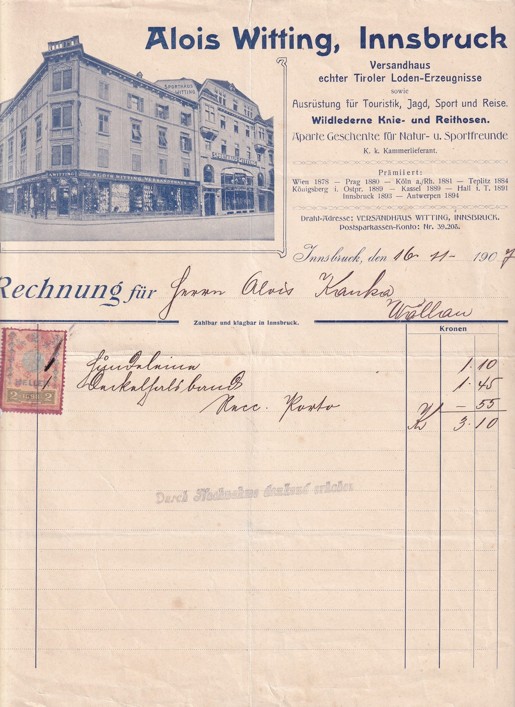 Alois Witting, Innsbruck
Versandhaus
echter Tiroler Loden-Erzeugnisse
sowie
Ausrüstung für Touristik, Jagd, Sport und Reise.
Wildlederne Knie- und Reithosen.
Aparte Geschenke für Natur- u. Sportfreunde
K. k. Kammerlieferant.
Prämiiert:
Wien 1878 — Prag 1880 — Köln a./Rh. 1881 — Teplitz 1884
Königsberg i. Ostpr. 1889 — Kassel 1889 — Hall i. T. 1891
Innsbruck 1893 — Antwerpen 1894
Draht-Adresse: VERSANDHAUS WITTING, INNSBRUCK.
Postsparkassen-Konto: Nr. 39.208.
SPORTHAUS WITTING
SPORTHAUS WITTING
WITTING ALOIS WITTING, VERSANDHAUS
Innsbruck, den 16-11-1907
Rechnung für Herrn Alois Kanka
Wällau
Zahlbar und klagbar in Innsbruck.
Kronen
1 Hundeleine 1.10
1 Deckelhalsband 1.45
Recc. Porto — 55
K 3.10
2 HELLER 2
Durch Nachnahme dankend erhalten